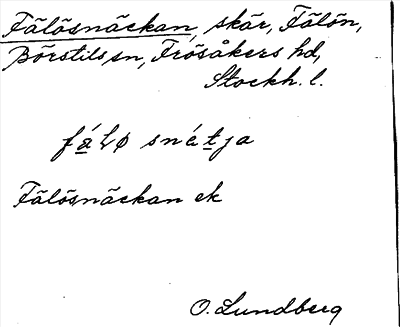 Fälösnäckan, skär, Fälön,
Börstils sn, Frösåkers hd,
Stockh. l.
Fälösnäckan ek
O. Lundberg